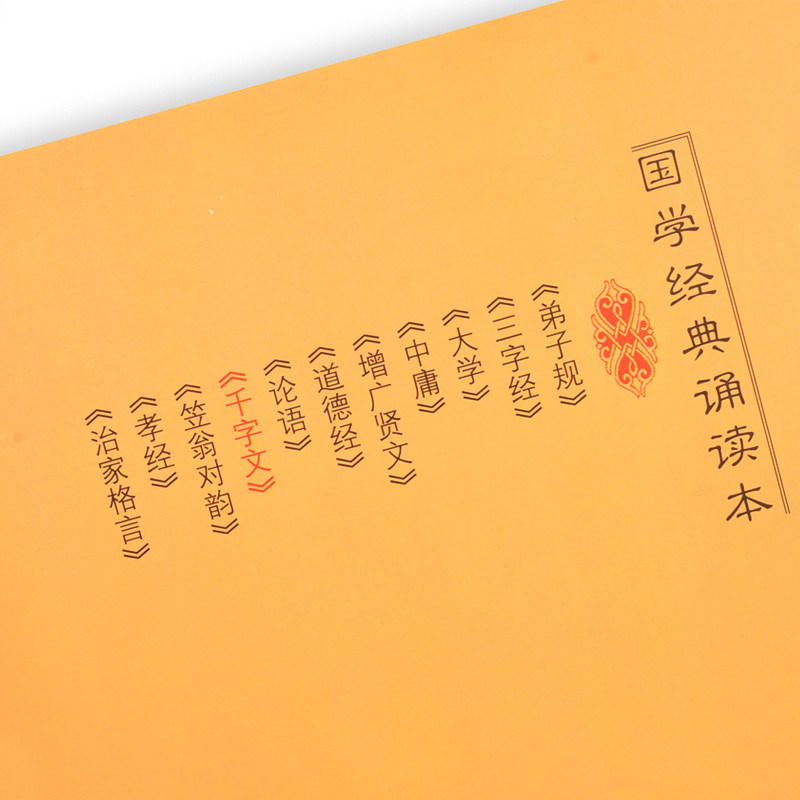 国学经典诵读本
《弟子规》
《三字经》
《大学》
《中庸》
《增广贤文》
《道德经》
《论语》
《千字文》
《笠翁对韵》
《孝经》
《治家格言》